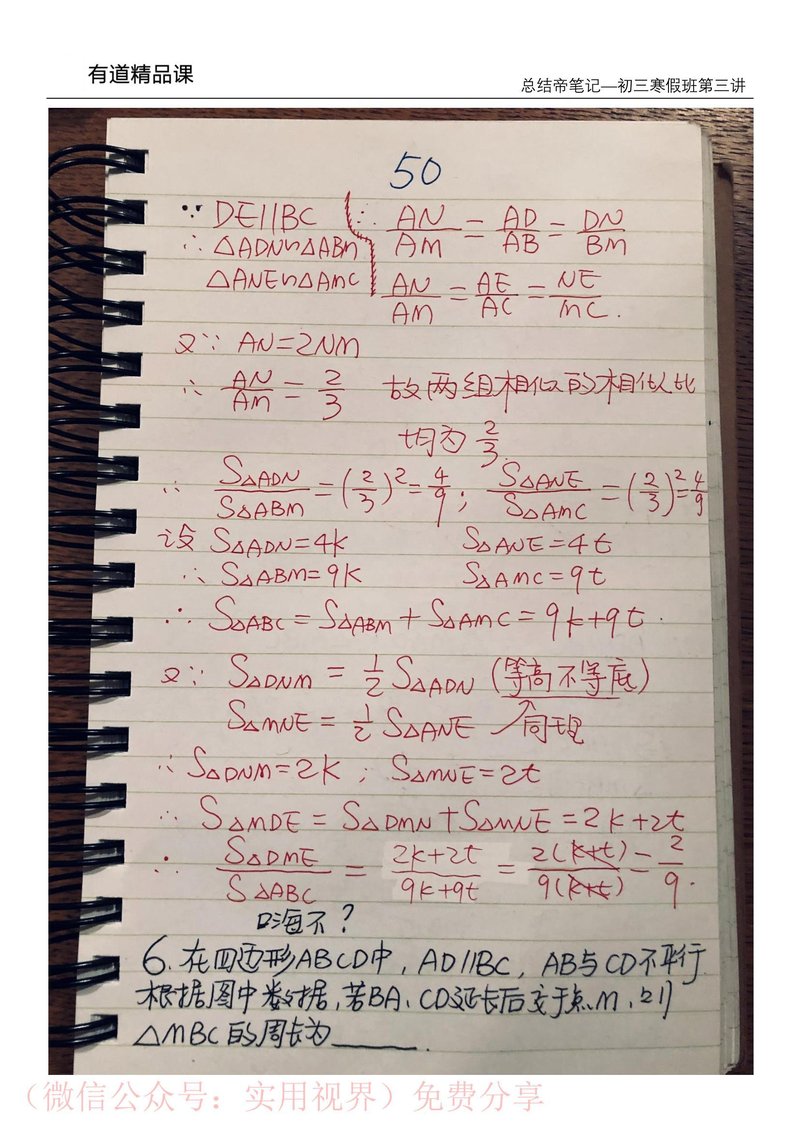 有道精品课
总结帝笔记—初三寒假班第三讲
50
∵ DE∥BC
∴ △ADN∽△ABM
△ANE∽△AMC
∴ AN/AM = AD/AB = DN/BM
AN/AM = AE/AC = NE/MC.
又∵ AN=2NM
∴ AN/AM = 2/3 故两组相似的相似比
均为 2/3.
∴ S△ADN/S△ABM = (2/3)²= 4/9 ; S△ANE/S△AMC = (2/3)²= 4/9
设 S△ADN=4k S△ANE=4t
∴ S△ABM=9k S△AMC=9t
∴ S△ABC = S△ABM + S△AMC = 9k+9t.
又∵ S△DNM = 1/2 S△ADN (等高不等底)
S△MNE = 1/2 S△ANE ↗同理
∴ S△DNM=2k ; S△MNE=2t
∴ S△MDE = S△DMN+S△MNE = 2k+2t
∴ S△DME/S△ABC = 2k+2t/9k+9t = 2(k+t)/9(k+t) = 2/9.
嗨不？
6. 在四边形ABCD中，AD∥BC，AB与CD不平行
根据图中数据，若BA、CD延长后交于点M，则
△MBC的周长为______.
（微信公众号：实用视界）免费分享